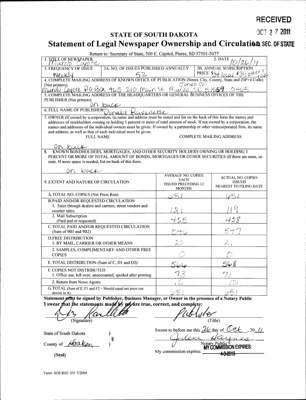 RECEIVED
OCT 27 2011
SEC. OF STATE
STATE OF SOUTH DAKOTA
Statement of Legal Newspaper Ownership and Circulation
Return to: Secretary of State, 500 E. Capitol, Pierre, SD 57501-5077
1. TITLE OF NEWSPAPER
2. DATE
10/26/11
3. FREQUENCY OF ISSUE
3A. NO. OF ISSUES PUBLISHED ANNUALLY
3B. ANNUAL SUBSCRIPTION PRICE
Weekly
52
4. COMPLETE MAILING ADDRESS OF KNOWN OFFICE OF PUBLICATION (Street, City, County, State and ZIP+4 Code)
(Not printer)
5. COMPLETE MAILING ADDRESS OF THE HEADQUARTERS OR GENERAL BUSINESS OFFICES OF THE
PUBLISHER (Not printer)
on back
6. FULL NAME OF PUBLISHER:
7. OWNER (If owned by a corporation, its name and address must be stated and list on the back of this form the names and
addresses of stockholders owning or holding 1 percent or more of total amount of stock. If not owned by a corporation, the
names and addresses of the individual owners must be given. If owned by a partnership or other unincorporated firm, its name
and address, as well as that of each individual must be given).
FULL NAME
COMPLETE MAILING ADDRESS
on back
8. KNOWN BONDHOLDERS, MORTGAGEES, AND OTHER SECURITY HOLDERS OWNING OR HOLDING 1
PERCENT OR MORE OF TOTAL AMOUNT OF BONDS, MORTGAGES OR OTHER SECURITIES (If there are none, so
state. If more space is needed, list on back of this form.
on back
9. EXTENT AND NATURE OF CIRCULATION
AVERAGE NO. COPIES
EACH ISSUE
ISSUED PRECEDING 12
MONTHS
ACTUAL NO. COPIES
ISSUED
NEAREST TO FILING DATE
A. TOTAL NO. COPIES (Net Press Run)
651
651
B. PAID AND/OR REQUESTED CIRCULATION
1. Sales through dealers and carriers, street vendors and
counter sales.
121
119
2. Mail Subscription
(Paid and or requested)
425
428
C. TOTAL PAID AND/OR REQUESTED CIRCULATION
(Sum of 9B1 and 9B2)
546
547
D. FREE DISTRIBUTION
1. BY MAIL, CARRIER OR OTHER MEANS
20
21
2. SAMPLES, COMPLIMENTARY AND OTHER FREE
COPIES
E. TOTAL DISTRIBUTION (Sum of C, D1 and D2)
566
568
F. COPIES NOT DISTRIBUTED
1. Office use, left over, unaccounted, spoiled after printing
73
71
2. Return from News Agents
TOTAL (Sum of E, F1 and F2 - Should equal net press run
shown in A)
651
651
Statement must be signed by Publisher, Business Manager, or Owner in the presence of a Notary Public
I swear that the statements made by me are true, correct, and complete:
Publisher
(Signature)
(Title)
State of South Dakota
County of
)
§
)
Sworn to before me this 26 day of Oct, 2011
Notary Public
My commission expires:
MY COMMISSION EXPIRES
(Seal)
Form: SOS REC 051 7/2004